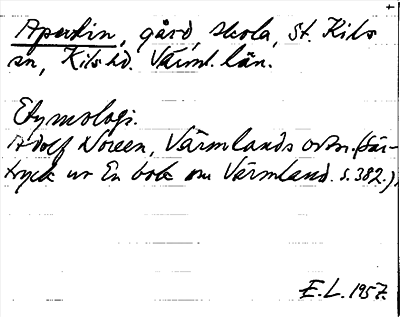 Apertin, gård, skola, St. Kils
sn, Kils hd. Värml. län.
Etymologi.
Adolf Noreen, Värmlands ortn. (Sär-
tryck ur En bok om Värmland. s. 382.),
E.L. 1957.